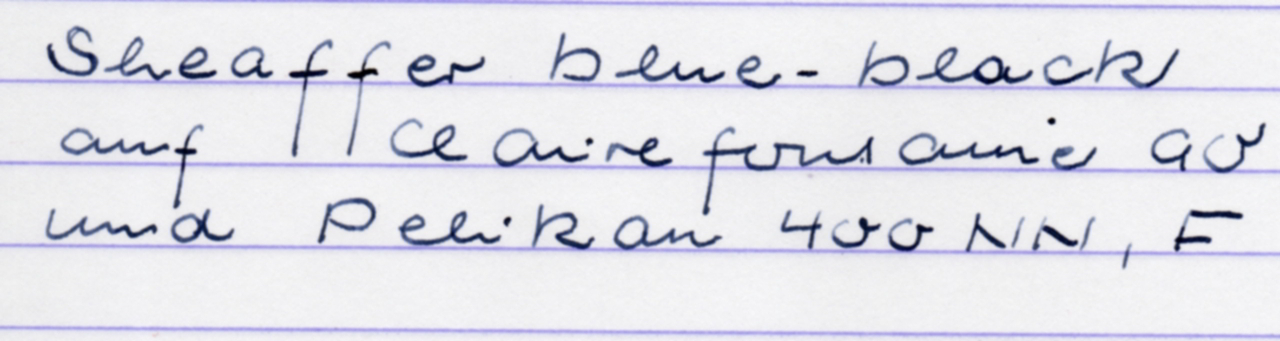 Sheaffer blue-black
auf Clairefontaine 90
und Pelikan 400 NN, F